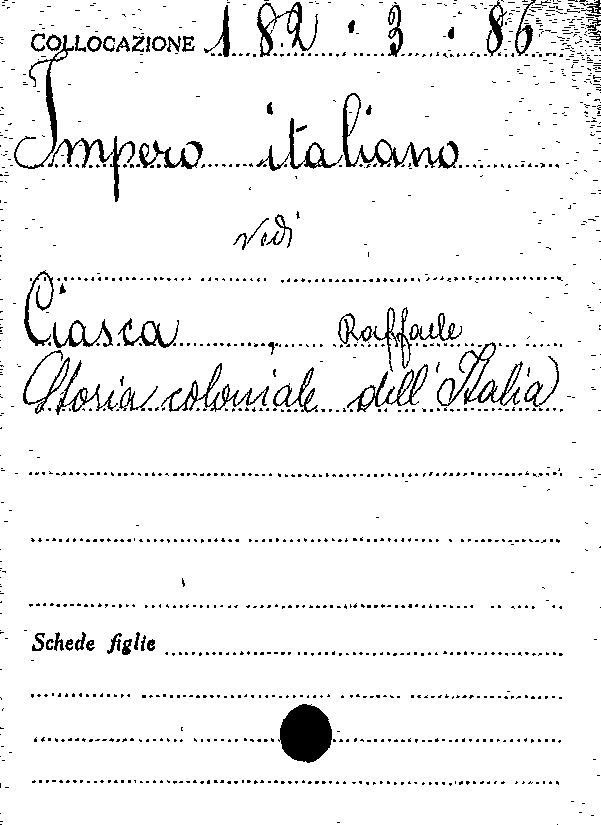 COLLOCAZIONE 182.3.86
Impero italiano
vedi
Ciasca, Raffaele
Storia coloniale dell'Italia
Schede figlie